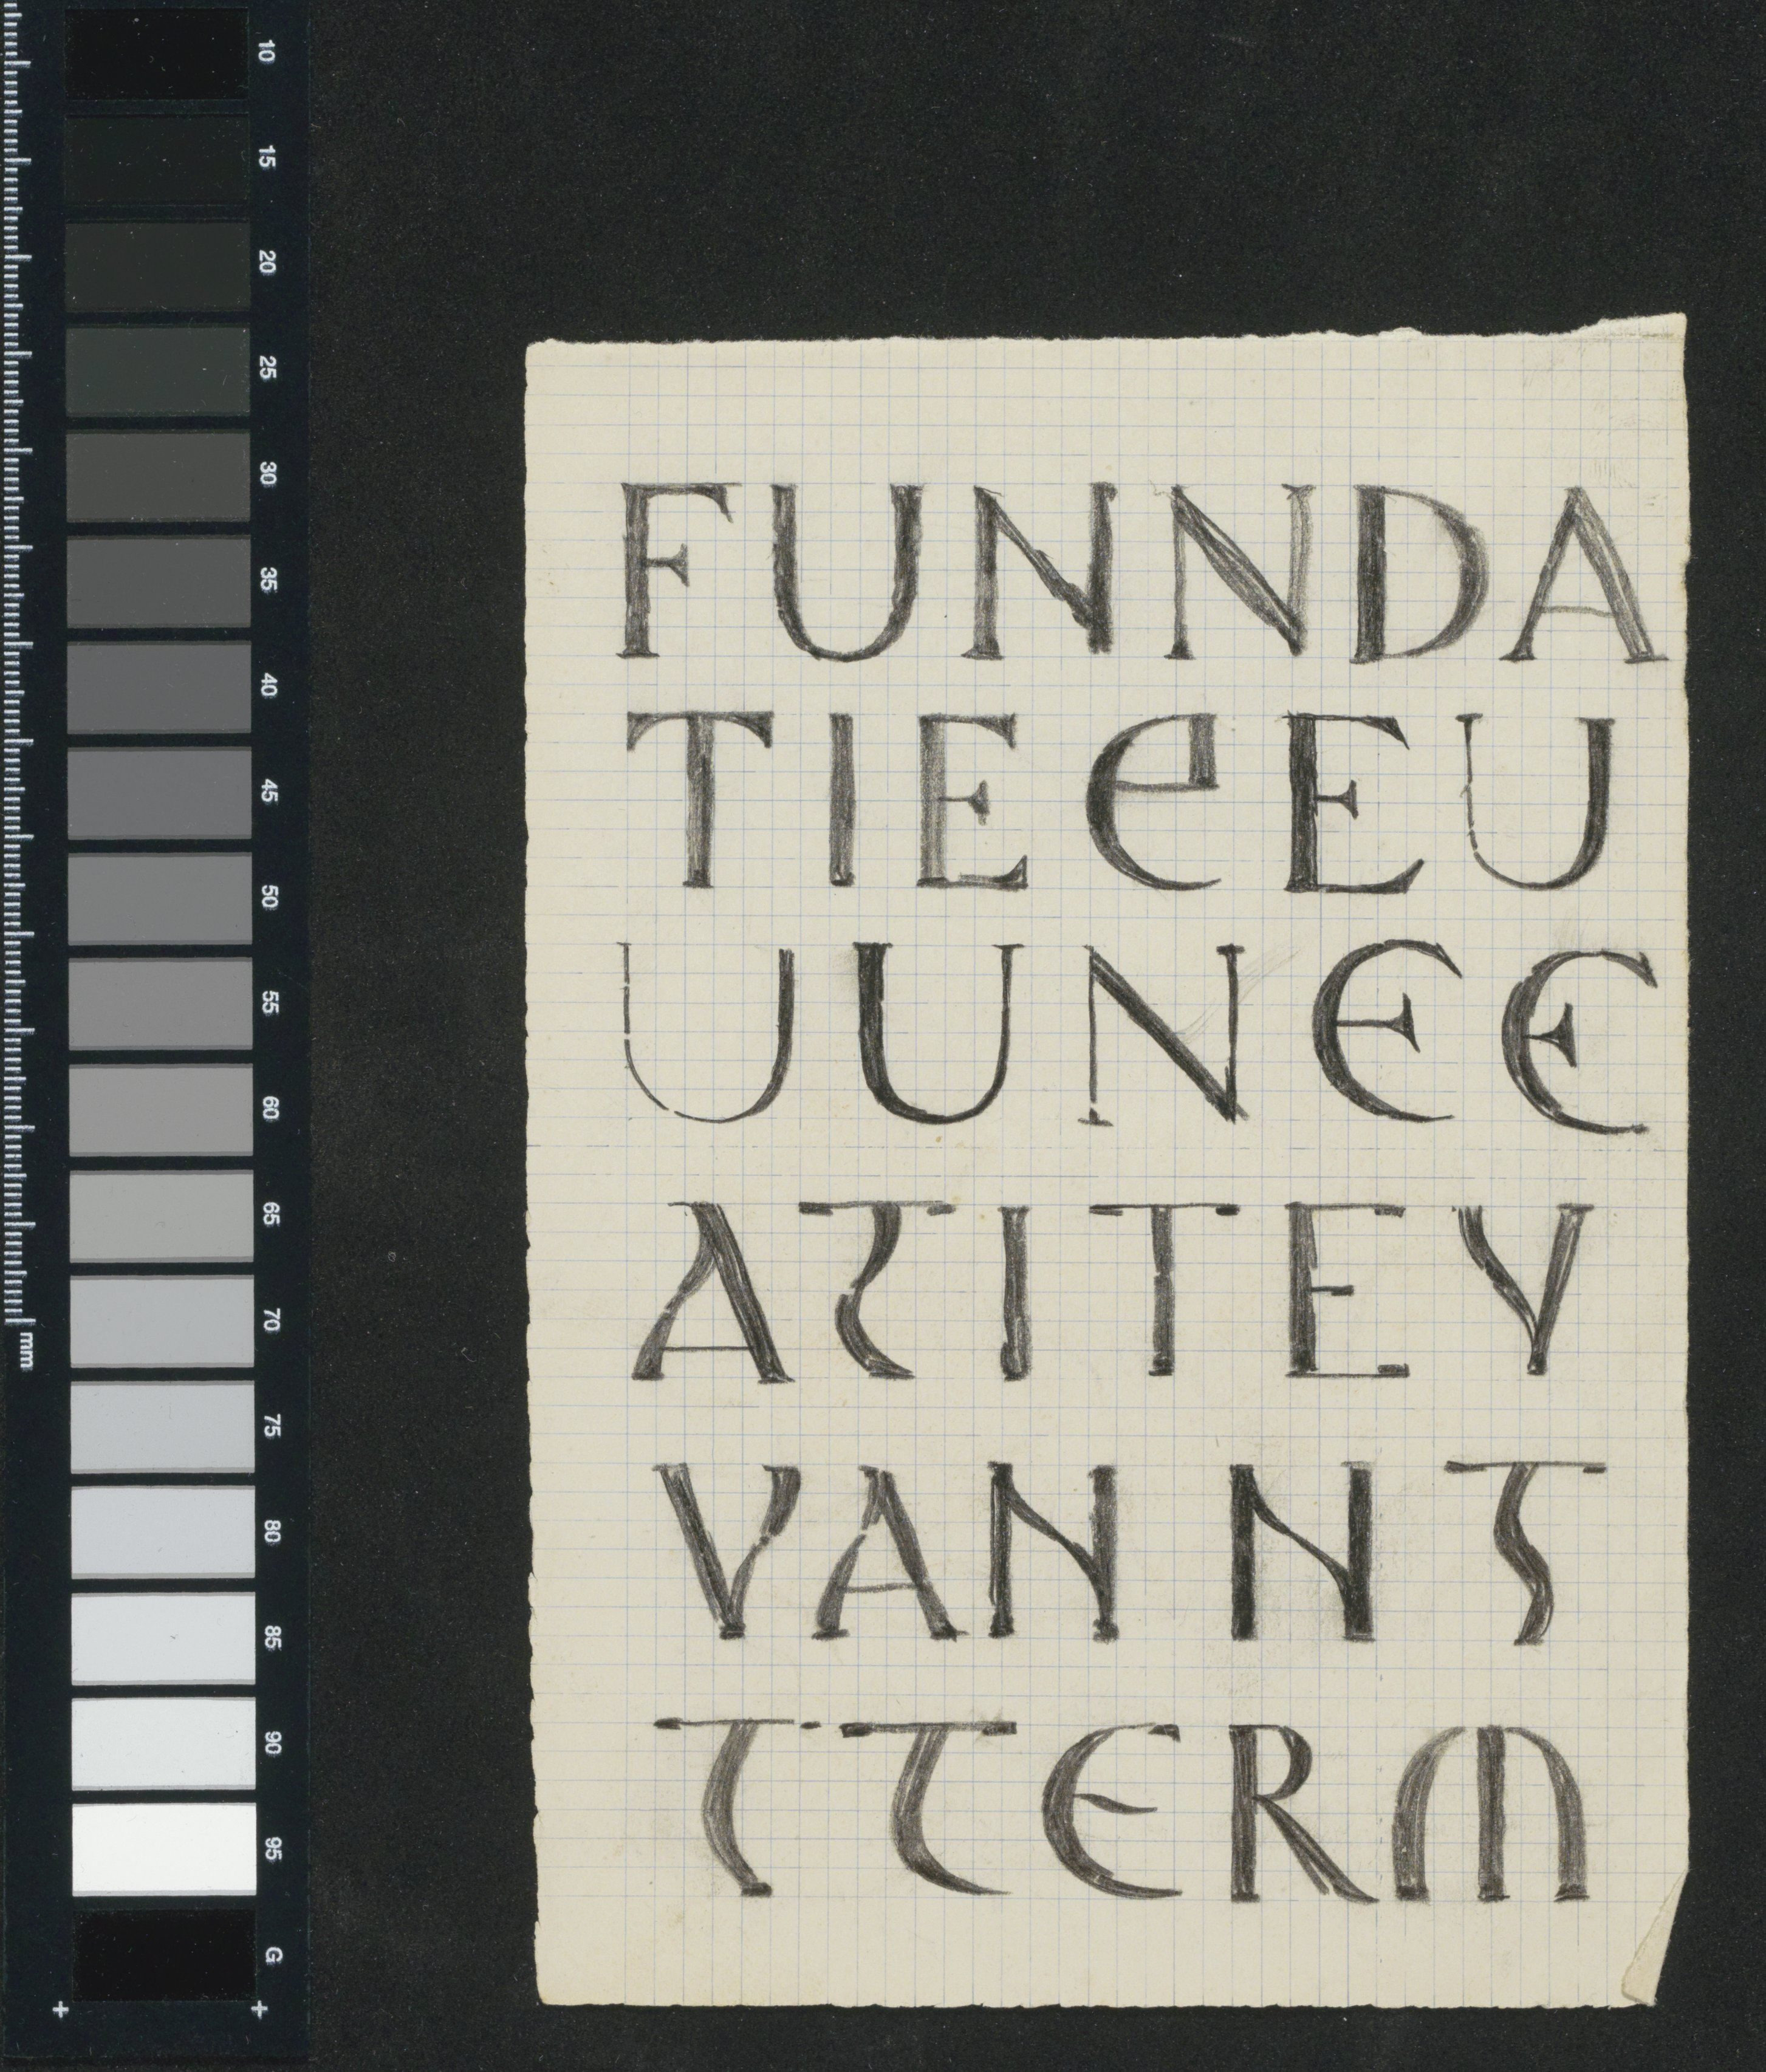 10
15
20
25
30
35
40
45
50
55
60
65
70
75
80
85
90
95
G
mm
FUNNDA
TIEeEU
UUNEE
ATITEV
VANNT
TTERM